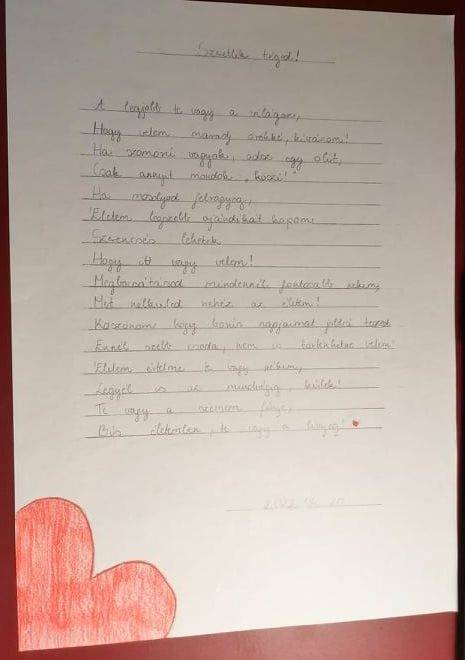 Szeretlek téged!
A legjobb te vagy a világon,
Hogy velem maradj örökké, kívánom!
Ha szomorú vagyok, adsz egy ölit,
Csak annyit mondok „köszi!"
Ha mosolyod felragyog,
Életem legszebb ajándékát kapom.
Szerencsés lehetek
Hogy itt vagy velem!
Megbocsátásod mindennél fontosabb nekem,
Mert nélküled nehéz az életem!
Köszönöm hogy borús napjaimat jobbá teszed
Ennél szebb csoda, nem is történhetne velem!
Életem értelme te vagy nekem,
Legyél is az mindvégig, kérlek!
Te vagy a szemem fénye,
Bús életemben, te vagy a